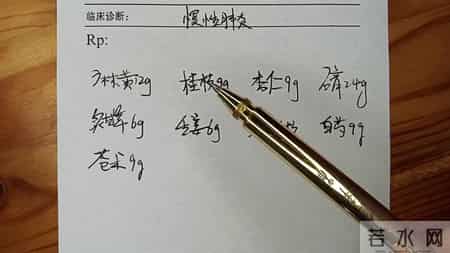 临床诊断: 慢性肺炎
Rp:
麻黄12g 桂枝9g 杏仁9g 石膏24g
6g 生姜6g 白芍9g
苍术9g
若水网